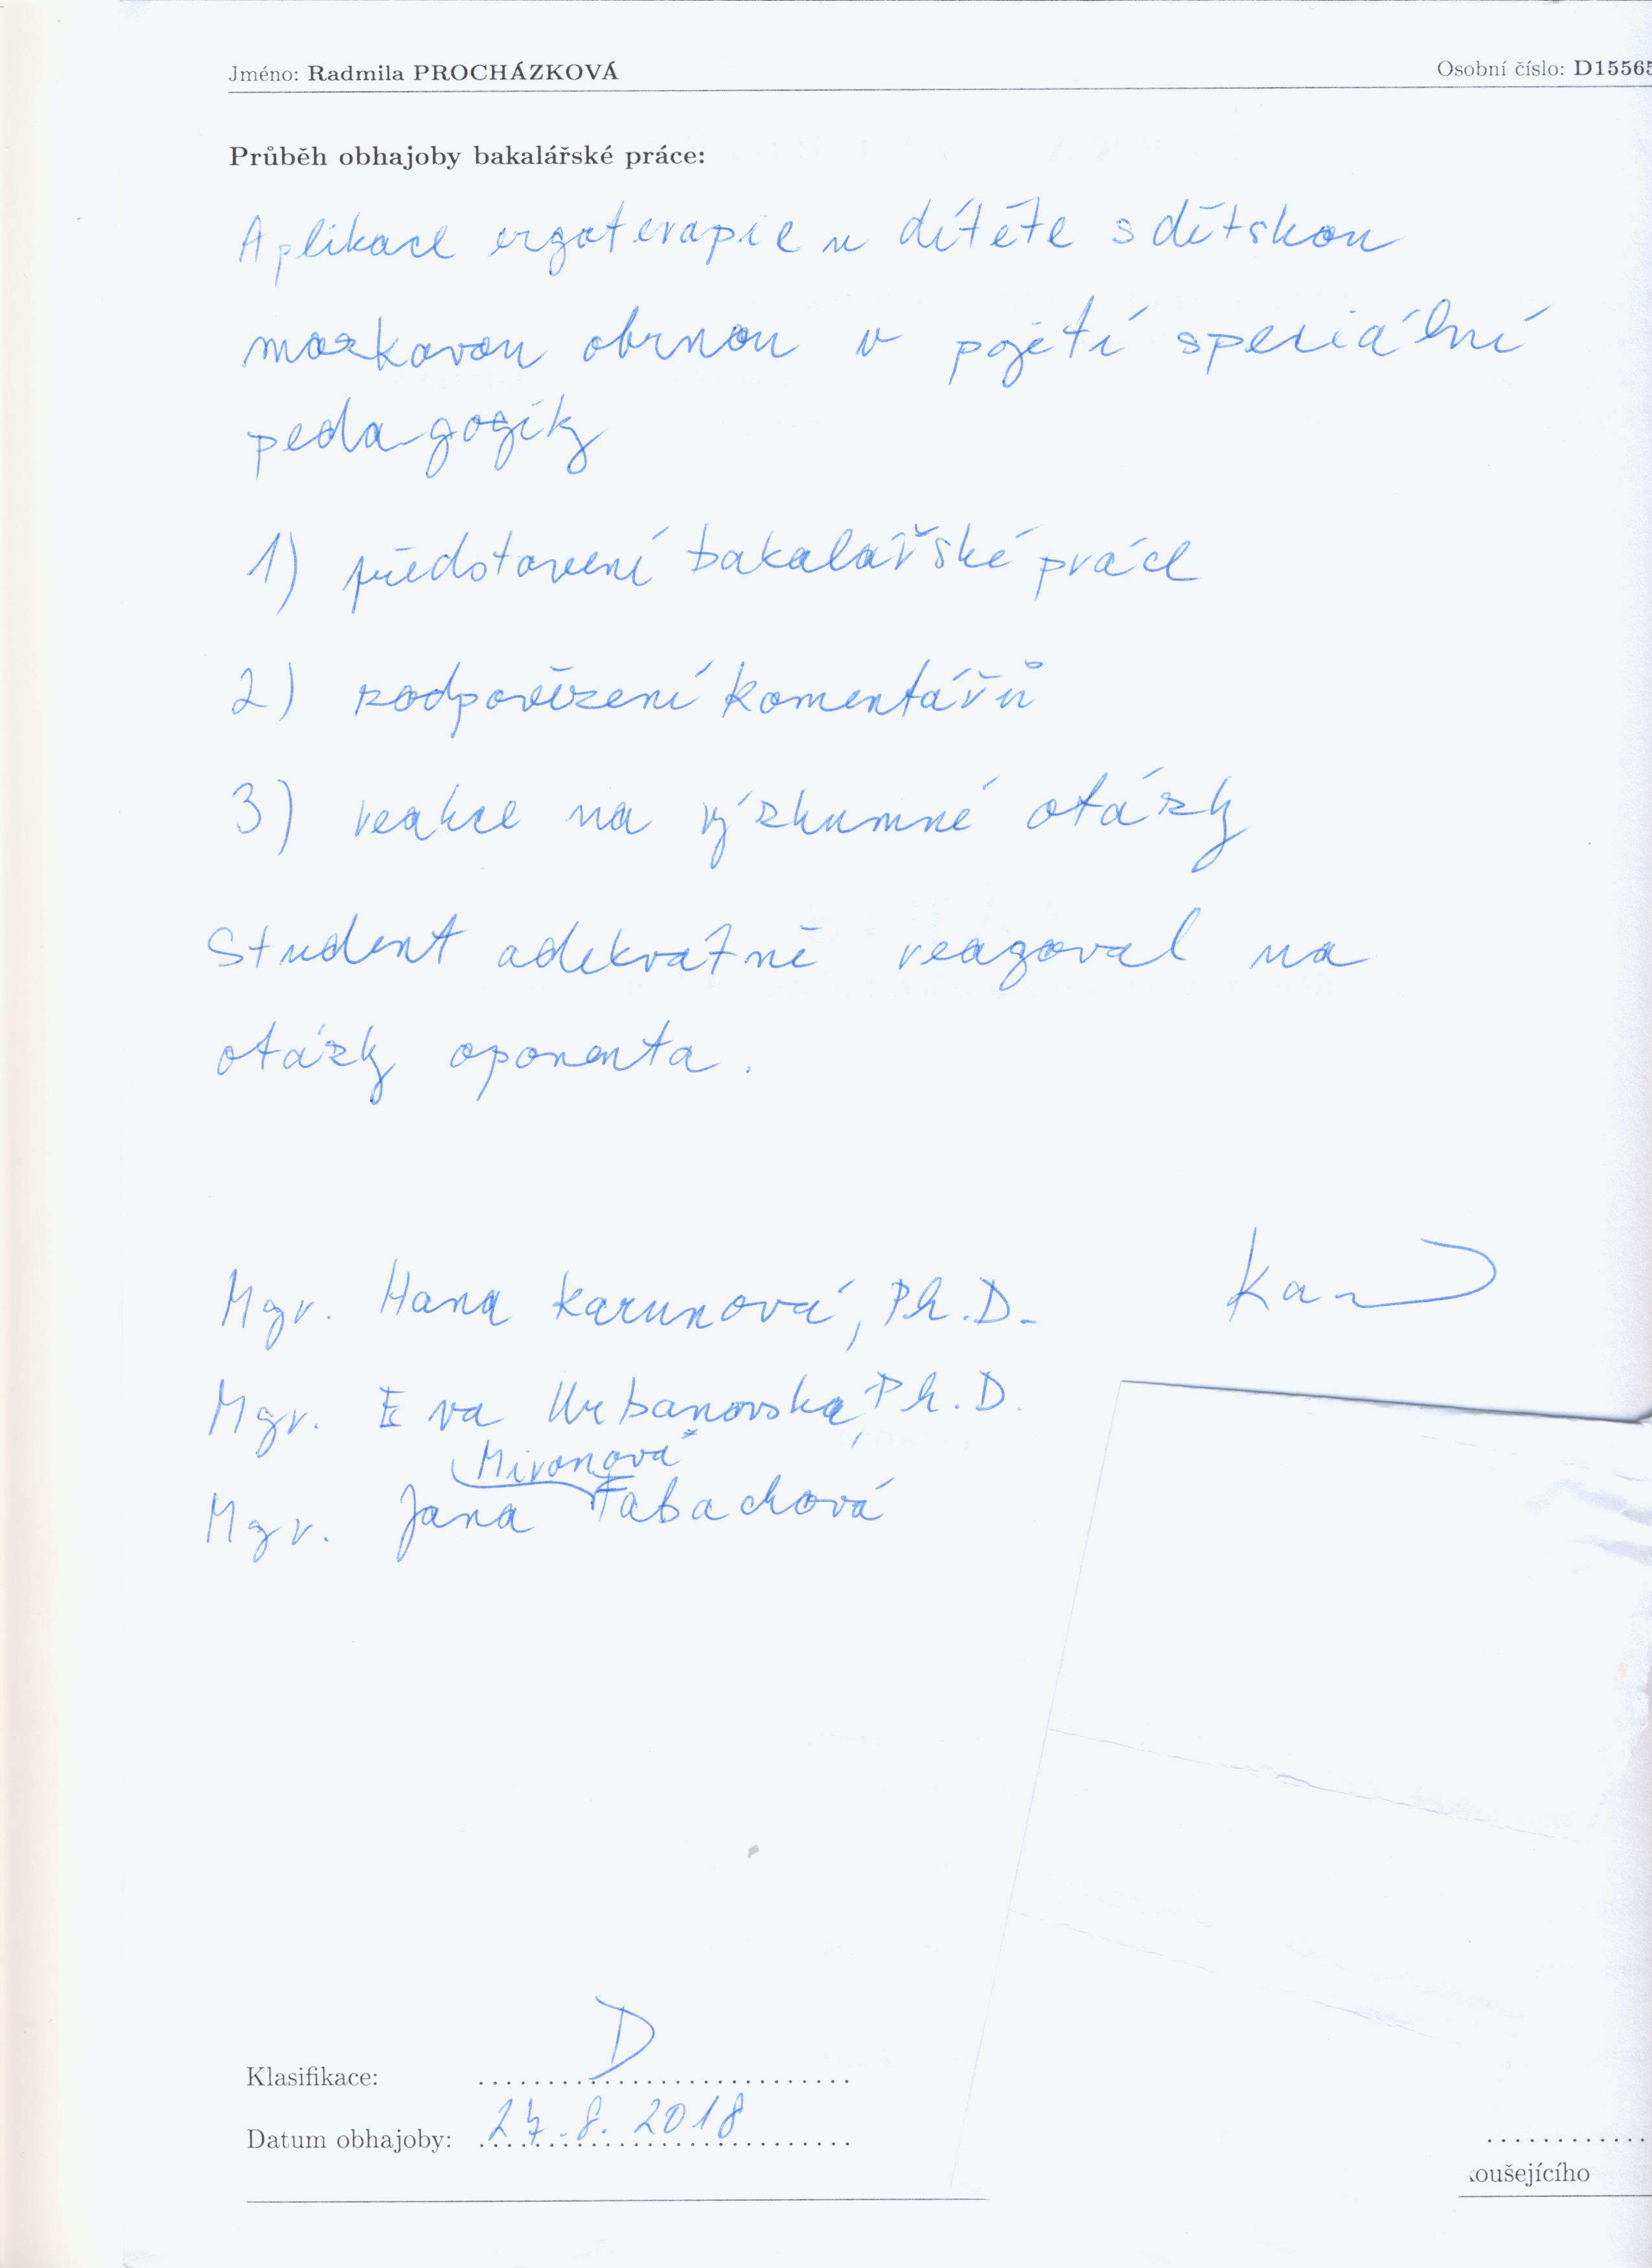 Jméno: Radmila PROCHÁZKOVÁ Osobní číslo: D15565
Průběh obhajoby bakalářské práce:
Aplikace ergoterapie u dítěte s dětskou
mozkovou obrnou v pojetí speciální
pedagogiky
1) představení bakalářské práce
2) zodpovězení komentářů
3) reakce na výzkumné otázky
Student adekvátně reagoval na
otázky oponenta.
Mgr. Hana Karunová, Ph.D.
Mgr. Eva Urbanovská, Ph.D.
Mironová
Mgr. Jana Tabachová
Klasifikace: D
Datum obhajoby: 27.8. 2018
oušejícího